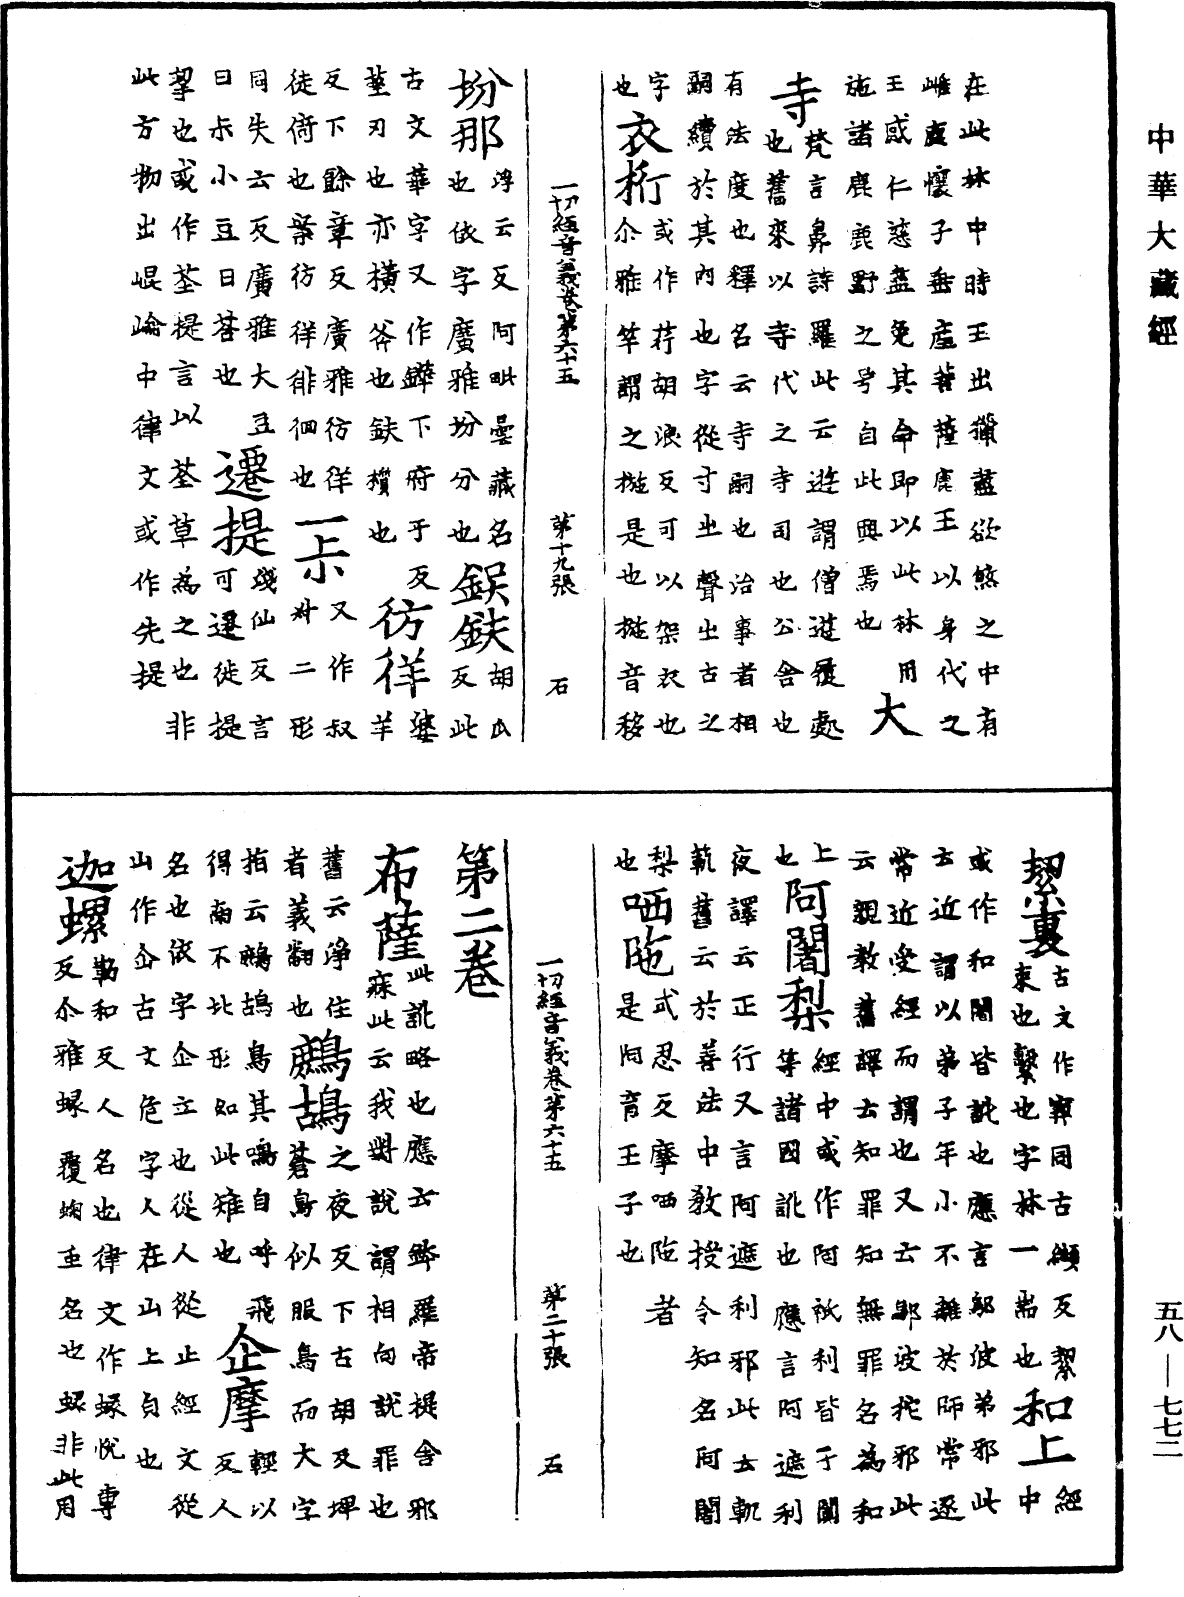 中華大藏經
在此林中時王出獵蓋欲煞之中有
雌鹿懷子垂產菩薩鹿王以身代之
王感仁慈盡免其命即以此林用
施諸鹿鹿野之号自此興焉也 大
寺
梵言鼻訶羅此云遊謂僧遊履處
也舊來以寺代之寺司也公舍也
有法度也釋名云寺嗣也治事者相
嗣續於其內也字從寸㞢聲㞢古之
字
也
衣桁
或作荇胡浪反可以架衣也
尒雅竿謂之椸是也椸音移
一切經音義卷第六十五 第十九張 石
坋那
浮云反阿毗曇藏名
也依字廣雅坋分也
鋘鈇
胡瓜反此
古文華字又作鏵下府于反
莖刃也亦橫斧也鈇櫍也
彷徉
婆羊
反下餘章反廣雅彷徉
徒倚也案彷徉徘徊也
一尗
又作叔
卌二形
同失六反廣雅大豆
曰尗小豆曰荅也
遷提
淺仙反言
可遷徙提
挈也或作荃提言以荃草為之也非
此方物出崐崘中律文或作先提
絜裏
古文作䋀同古纈反絜
束也繫也字林一耑也
和上
經中
或作和闍皆訛也應言郁波弟邪此
云近謂以弟子年小不離於師常逐
常近受經而謂也又云鄔波柁邪此
云親教舊譯云知罪知無罪名為和
上
也
阿闍梨
經中或作阿祇利皆于闐
等諸國訛也應言阿遮利
夜譯云正行又言阿遮利邪此云軌
範舊云於善法中教授令知名阿闍
梨
也
哂陁
式忍反摩哂陁者
是阿育王子也
一切經音義卷第六十五 第二十張 石
第二卷
布薩
此訛略也應云鉢羅帝提舍邪
寐此云我對說謂相向說罪也
舊云淨住
者義翻也
鷓鴣
之夜反下古胡反埤
蒼鳥似服鳥而大字
指云鷓鴣鳥其鳴自呼飛輕以
得南不北形如此雉也
企摩
反人
名也依字企立也從人從止經文從
山作仚古文危字人在山上皃也
迦螺
勒和反人名也律文作蟓悅專
反尒雅蟓蝮蜪重名也蟓非此用
五八—七七二